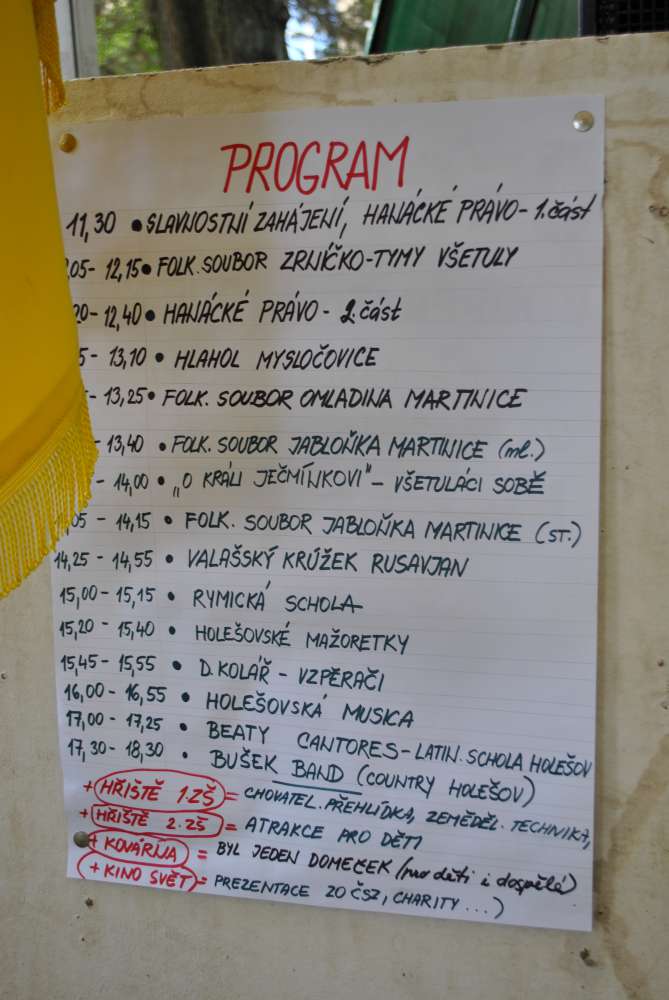 PROGRAM
11,30 • SLAVNOSTNÍ ZAHÁJENÍ, HANÁCKÉ PRÁVO - 1. část
05 - 12,15 • FOLK. SOUBOR ZRNÍČKO - TYMY VŠETULY
20 - 12,40 • HANÁCKÉ PRÁVO - 2. část
5 - 13,10 • HLAHOL MYSLOČOVICE
- 13,25 • FOLK. SOUBOR OMLADINA MARTINICE
- 13,40 • FOLK. SOUBOR JABLOŇKA MARTINICE (ml.)
- 14,00 • „O KRÁLI JEČMÍNKOVI" - VŠETULÁCI SOBĚ
05 - 14,15 • FOLK. SOUBOR JABLOŇKA MARTINICE (ST.)
14,25 - 14,55 • VALAŠSKÝ KRÚŽEK RUSAVJAN
15,00 - 15,15 • RYMICKÁ SCHOLA
15,20 - 15,40 • HOLEŠOVSKÉ MAŽORETKY
15,45 - 15,55 • D. KOLÁŘ - VZPĚRAČI
16,00 - 16,55 • HOLEŠOVSKÁ MUSICA
17,00 - 17,25 • BEATY CANTORES - LATIN. SCHOLA HOLEŠOV
17,30 - 18,30 • BUŠEK BAND (COUNTRY HOLEŠOV)
+ HŘIŠTĚ 1. ZŠ = CHOVATEL. PŘEHLÍDKA, ZEMĚDĚL. TECHNIKA,
+ HŘIŠTĚ 2. ZŠ = ATRAKCE PRO DĚTI
+ KOVÁRIJA = BYL JEDEN DOMEČEK (pro děti i dospělé)
+ KINO SVĚT = PREZENTACE ZO ČSZ, CHARITY ...)